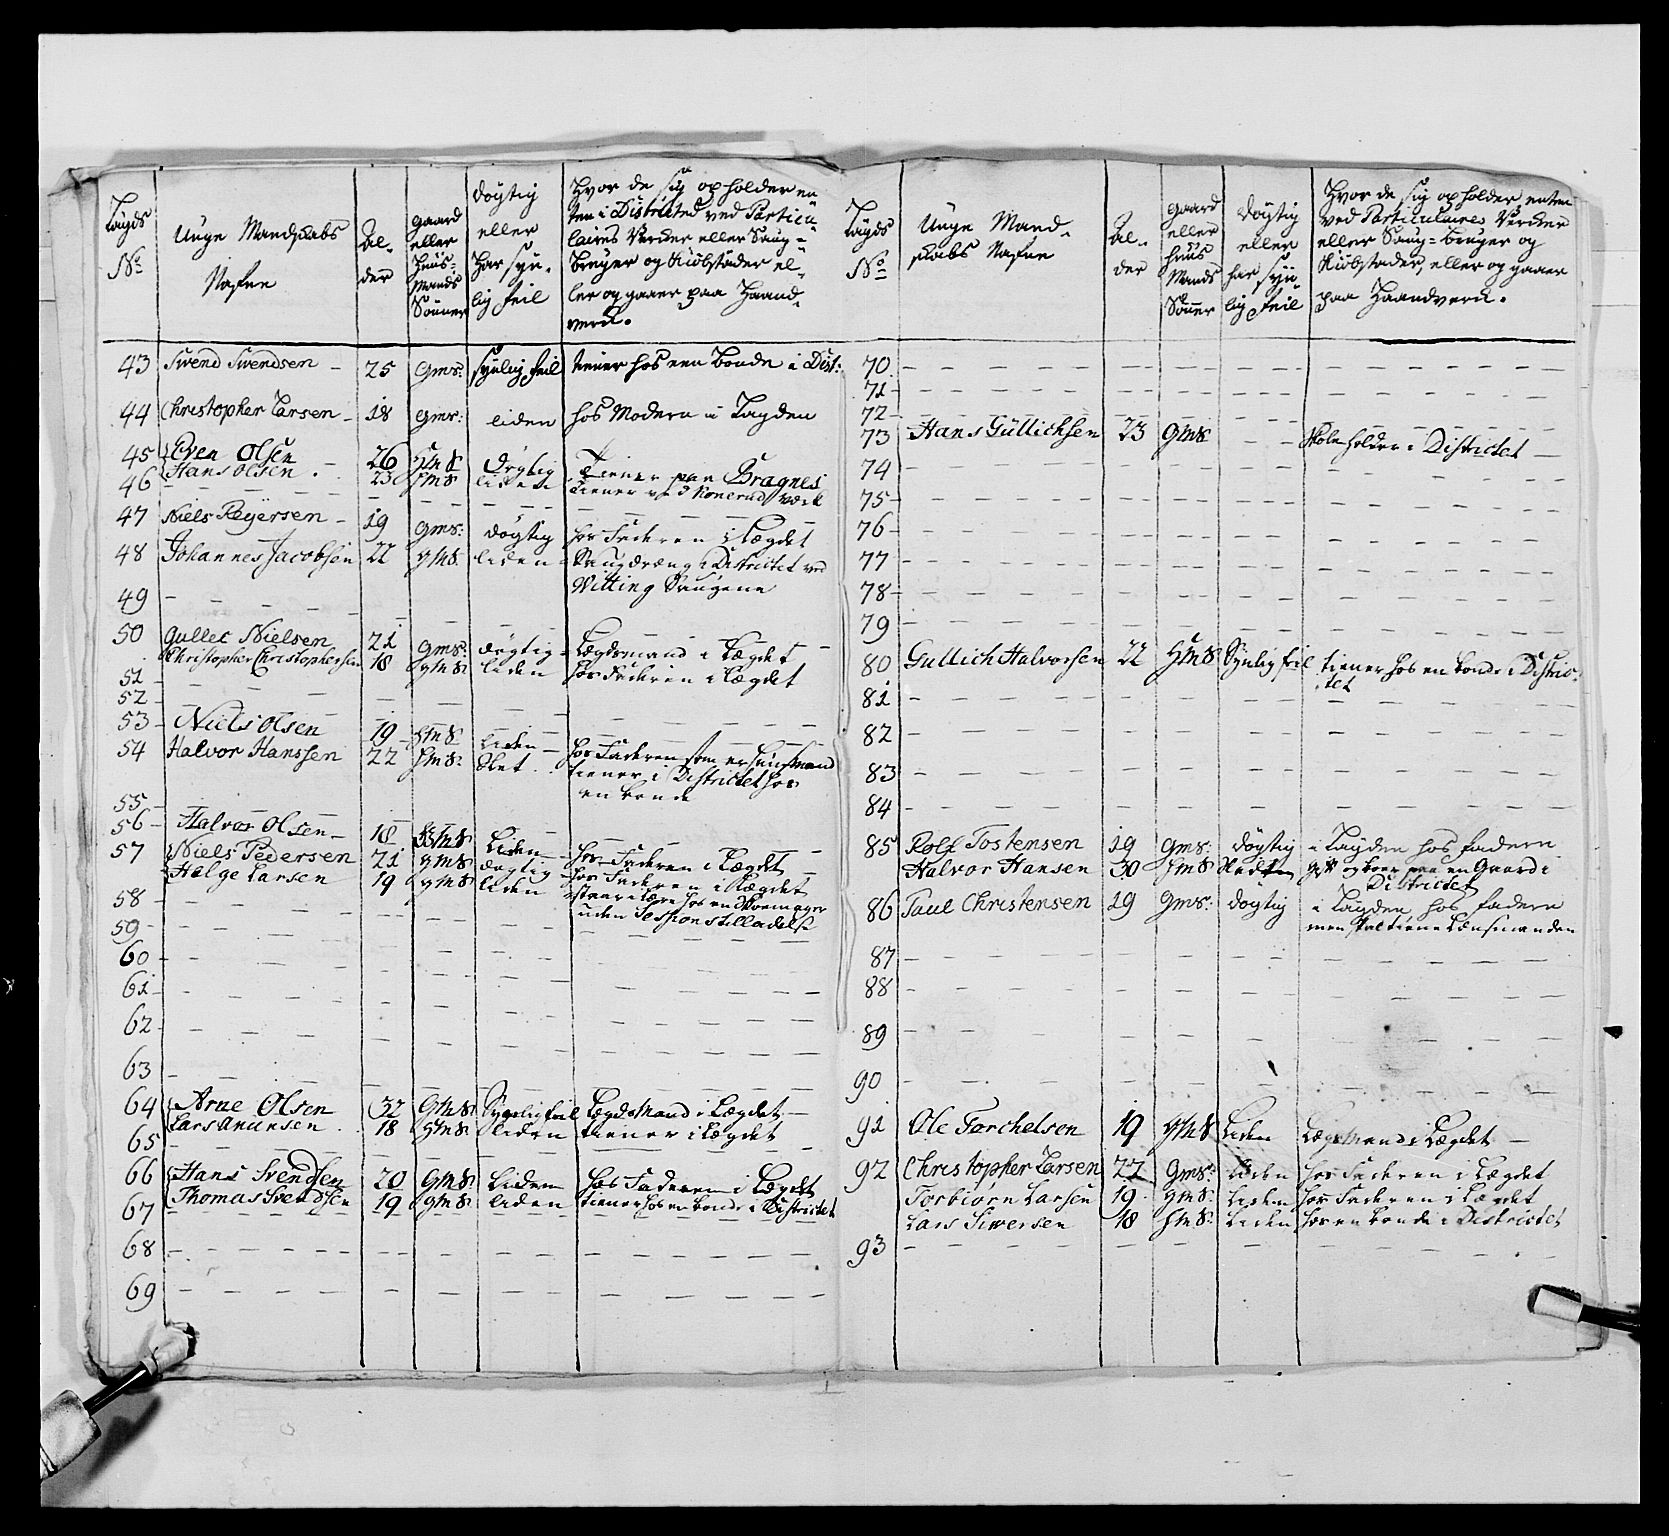 Lægds
No
Unge Mandskabs
Nafne
Al-
der
gaard
eller
Huus-
Mands
Sønner
døgtig
eller
har syn-
lig feil
Hvor de sig opholder en
ten i Districted ved Particu
laires Værcker eller Saug-
bruger og Kiøbstæder el-
ler og gaaer paa Haand-
verck.
43 Svend Svendsen - 25 Gms: synlig feil tiener hos een bonde i Dist:
44 Christopher Larsen - 18 gms: liden hos Modern i Lagden
45 Even Olsen 26 HmS Døgtig Tiener paa Bragnes
46 Hans Olsen 23 HmS liden tiener ved Konerud værck
47 Niels Reyersen - 19 gms: døgtig hos Faderen i Lægdet
48 Johannes Jacobsen 22 gms. liden Saugdræng i Districtet ved
Witting Saugene
49
50 Gullec Nielsen 21 gms: døgtig Lægdsmand i Lægdet
Christopher Christophersen 18 gms: liden hos Faderen i Lægdet
51
52
53 Niels Olsen 19 HmS liden hos Faderen som er huusmand
54 Halvor Hanssen 22 HmS: Slet tiener i Districtet hos
en bonde
55
56 Halvor Olsen 18 HmS Liden hos Faderen i Lægdet
57 Niels Pedersen 21 gms døgtig hos Faderen i Lægdet
Helge Larsen 19 gms liden staar i lære hos en Skoemager
uden Sessions tilladelse
58
59
60
61
62
63
64 Arne Olsen 32 GmS. Synlig feil Lægdsmand i Lægdet
Lars Anunsen 18 HmS: liden tiener i Lægdet
65
66 Hans Svendsen 20 GmS: Liden hos Faderen i Lægdet
67 Thomas Svendsen 19 gms: liden tiener hos en bonde i Districtet
68
69
Lægds
No
Unge Mand-
skabs Nafne
Al-
der
gaard
eller
huus
Mands
Sønner
døgtig
eller
har syn-
lig feil
Hvor de sig opholder enten
ved Particulaires Værcker
eller Saug-bruger og
Kiøbstæder, eller og gaaer
paa Haandverck.
70
71
72
73 Hans Gullichsen 23 GmS Skoleholder i Districtet
74
75
76
77
78
79
80 Gullich Halvorsen 22 HmS Synlig feil tiener hos en bonde i Distric-
tet
81
82
83
84
85 Rolf Tostensen 19 gms: døgtig i Lagden hos fadern
Halvor Hansen 30 HmS gift og boer paa en Gaard i
Districtet
86 Paul Christensen 19 gms: døgtig i Lagden hos fadern
men skal tiene Lensmanden
87
88
89
90
91 Ole Torchelsen 19 gmS Liden Lægdsmand i Lægdet
92 Christopher Larsen 22 gms: liden hos Faderen i Lægdet
Torbiørn Larsen 19 gmS: Liden hos Faderen i Lægdet
Lars Siversen 18 HmS: Liden hos en bonde i Districtet
93